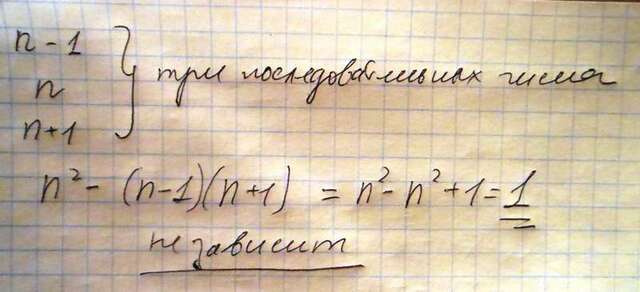 n-1
n } три последовательных числа
n+1
n² - (n-1)(n+1) = n² - n² + 1 = 1
не зависит